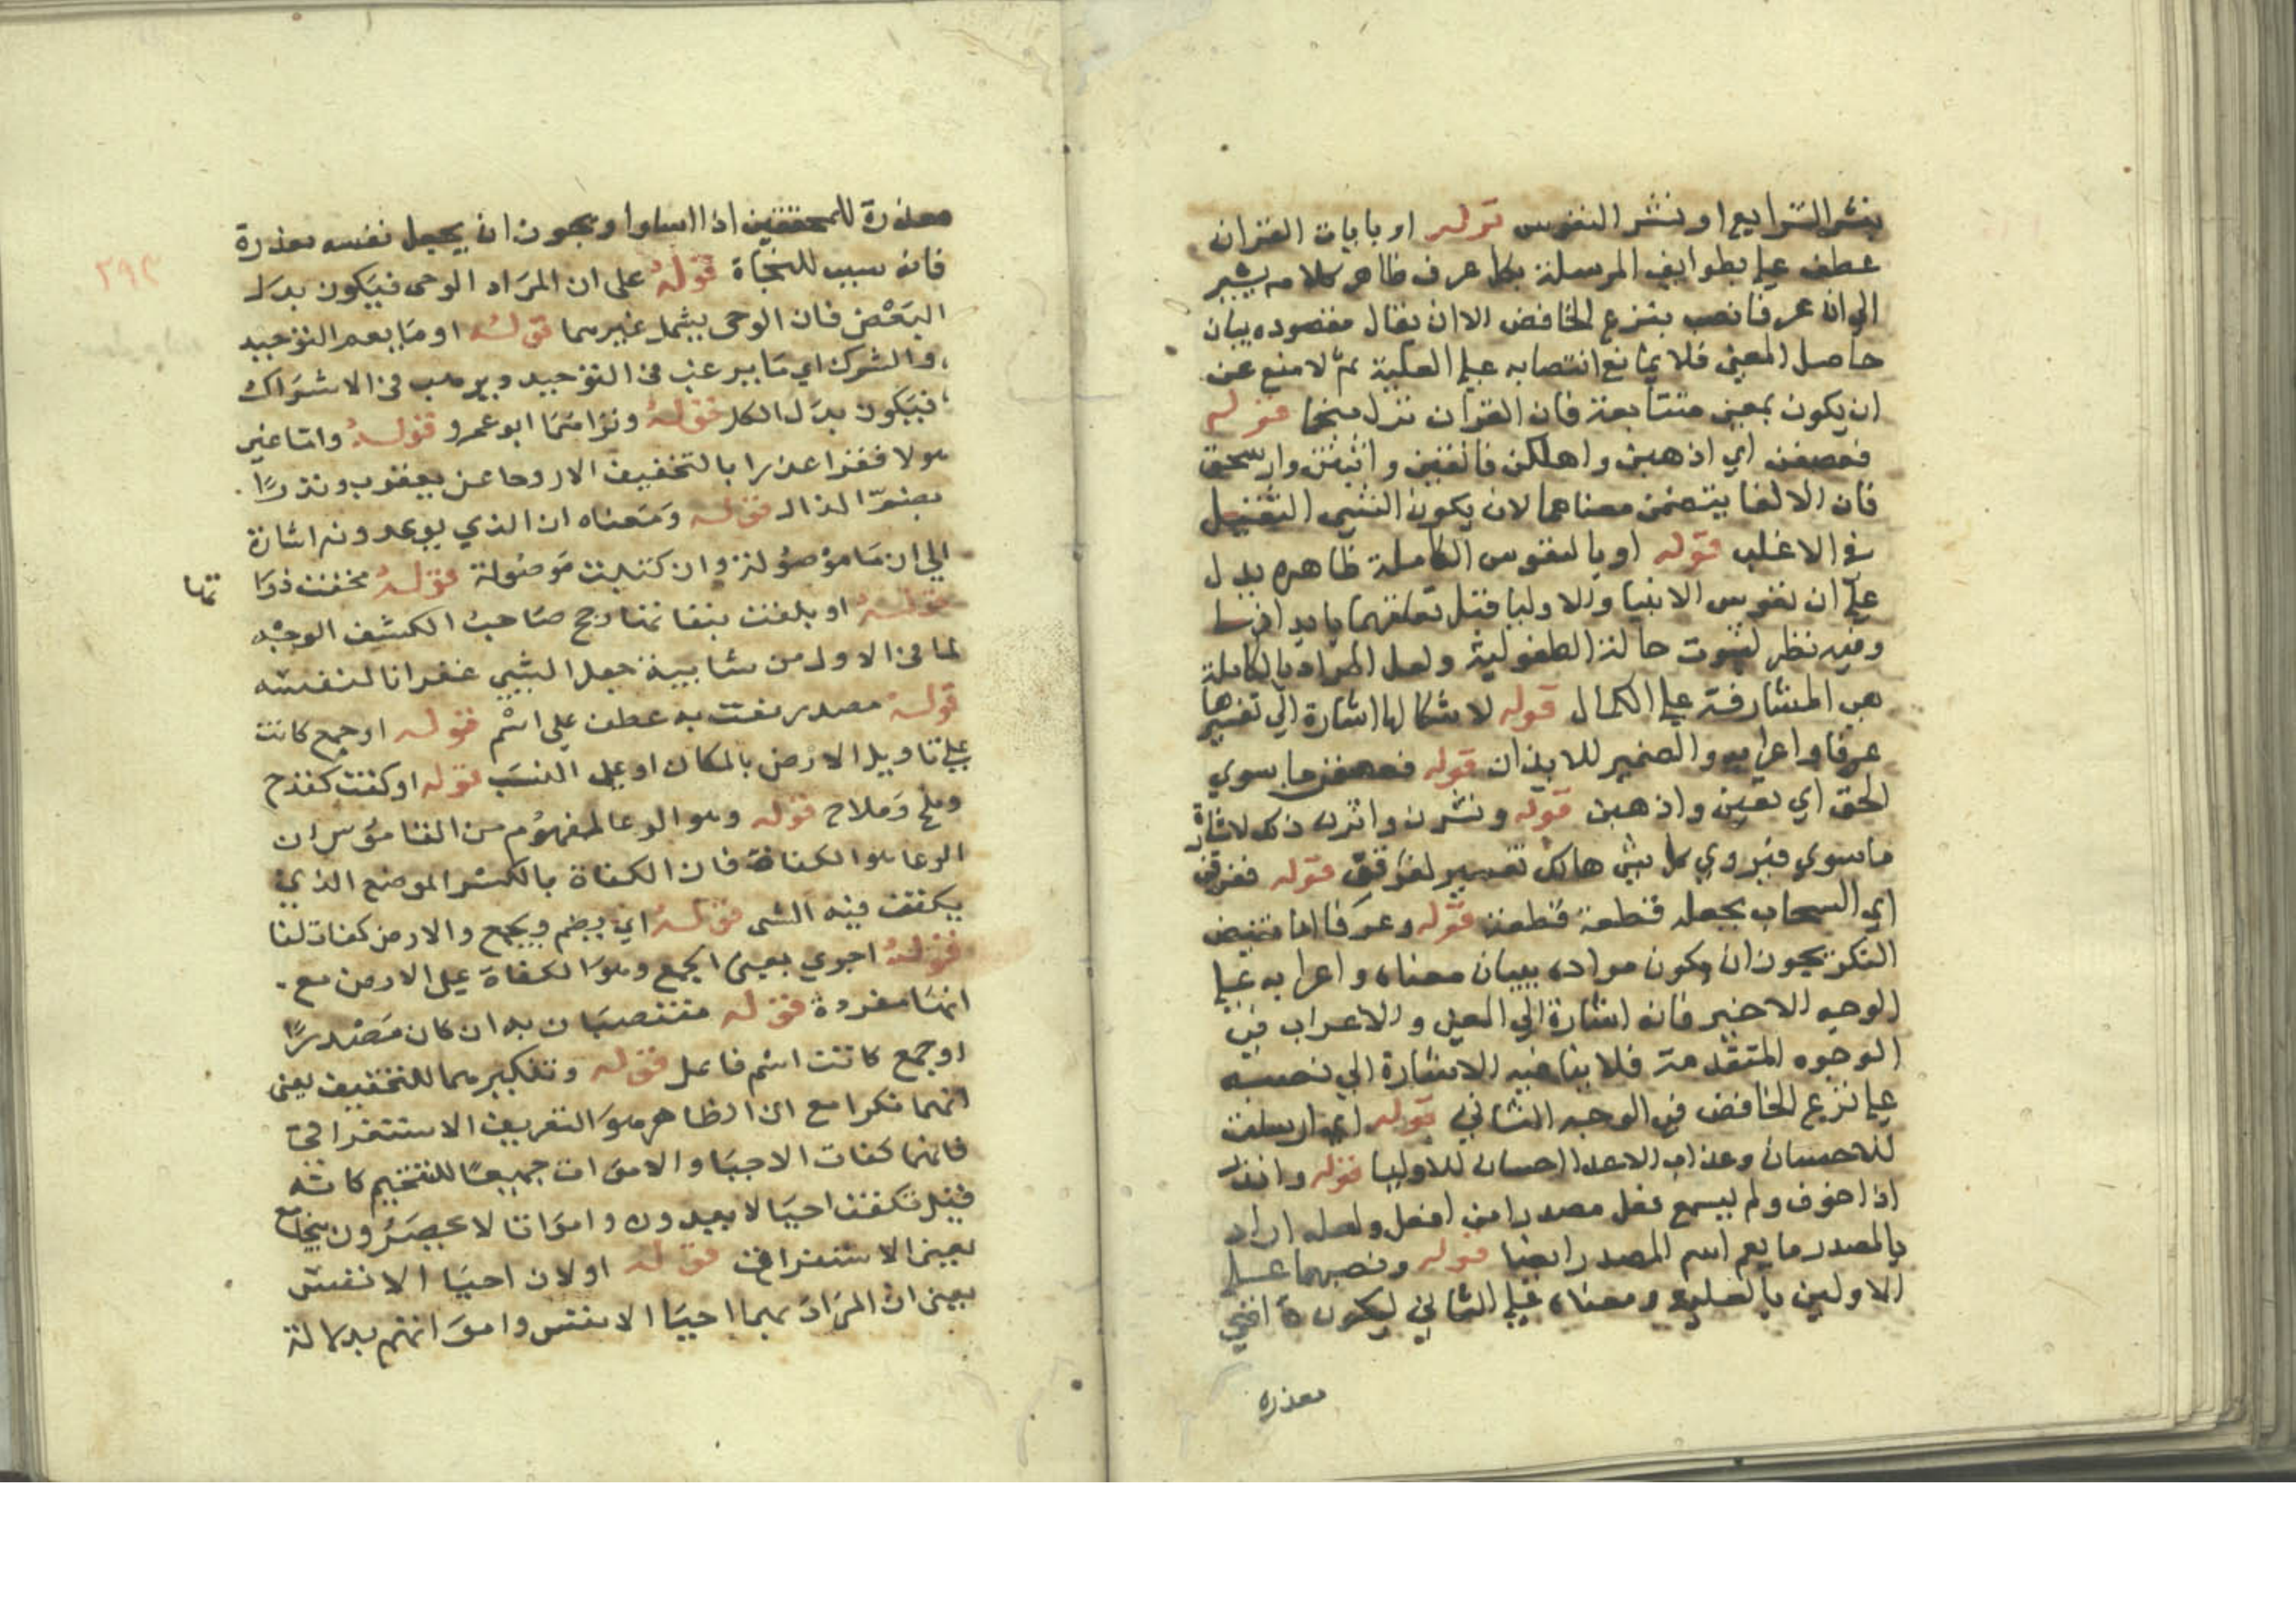 بنشر الشرايع او نشر النفوس قوله او بايات القران
عطف علي بطوايف المرسلة بكل عرف ظاهر كلامه يشير
الي ان عرفا نصب بنزع الخافض الا ان يقال مقصوده بيان
حاصل المعني فلا يمانع انتصابه علي العلية ثم لا منع عن
ان يكون بمعني متتابعة فان القران نزل منجما قوله
فعصفن اي اذهبن واهلكن فالقين واثبتن وارسخن
فان الالقا يتضمن معناهما لان يكون الشي الثقيل
في الاغلب قوله او بالنفوس الكاملة ظاهره يدل
علي ان نفوس الانبيا والاوليا قبل تعلقهما بابدانها
وفيه نظر لثبوت حالة الطفولية ولعل المراد بالكاملة
هي المشارفة علي الكمال قوله لاستكمالها اشارة الي تفسيرها
عرفا واعرابه والضمير للابدان قوله فعصفن ما سوي
الحق اي نفين واذهبن قوله ونشرن واثرن ذلك لاشارة
ما سوي فيروي كل شي هالك تفسير لفرقن قوله ففرقن
اي السحاب بجعله قطعة قطعة قوله وعرفا اما نقيض
النكر يجوز ان يكون مراده ببيان معناه واعرابه علي
الوجه الاخير فانه اشارة الي المعني والاعراب في
الوجوه المتقدمة فلا ينافيه الاشارة الي نصبه
علي نزع الخافض في الوجه الثاني قوله اي ارسلت
للاحسان وعذاب الاعدا احسان للاوليا قوله وانذر
اذا خوف ولم يسمع فعل مصدرا من افعل ولعله اراد
بالمصدر ما يعم اسم المصدر ايضا قوله ونصبهما علي
الاولين بالعلية ومعناه علي الثاني ليكون
معذره
معذرة للمحققين اذا اساوا ويجوز ان يجعل نفسه معذرة
فانه سبب للنجاة قوله علي ان المراد الوحي فيكون بدل
البعض فان الوحي يشمل غيرهما قوله او ما يعم التوحيد
والشرك اي ما يرغب في التوحيد ويرهب في الاشراك
فيكون بدل الكل قوله وقراهما ابو عمرو قوله واما غير
هولا فقرا عذرا بالتخفيف الا روحا عن يعقوب ونذرا
بضم الذال قوله ومعناه ان الذي يوعدونه اشارة
الي ان ما موصولة وان كتبت موصولة قوله مخففت ذواتها
قوله او بلغت بنقا نمنا رجح صاحب الكشف الوجه
لما في الاول من شايبة جعل الشي غفرانا لنفسه
قوله مصدر نعت به عطف علي اسم قوله او جمع كافت
علي تاويل الارض بالمكان او علي النسب قوله او كفت كقدح
وملح وملاح قوله وهو الوعا المفهوم من القاموس ان
الوعا هو الكفاة فان الكفاة بالكسر الموضع الذي
يكفت فيه الشي قوله اي يضم ويجمع والارض كفات لنا
قوله اجري بمعني الجمع وهو الكفاة علي الارض مع
انها مفردة قوله منتصبان به ان كان مصدرا
او جمع كافت اسم فاعل قوله وتنكيرهما للتفخيم يعني
انهما نكرا مع ان الظاهر هو التعريف الاستغراقي
فانها كفات الاحيا والاموات جميعا للتفخيم كانه
قيل تكفت احيا لا يعدون وامواتا لا يحصرون
بمعني الاستغراق قوله او لان احيا الانس
يعني ان المراد بهما احيا الانس وامواتهم بدلالة
٢٩٣